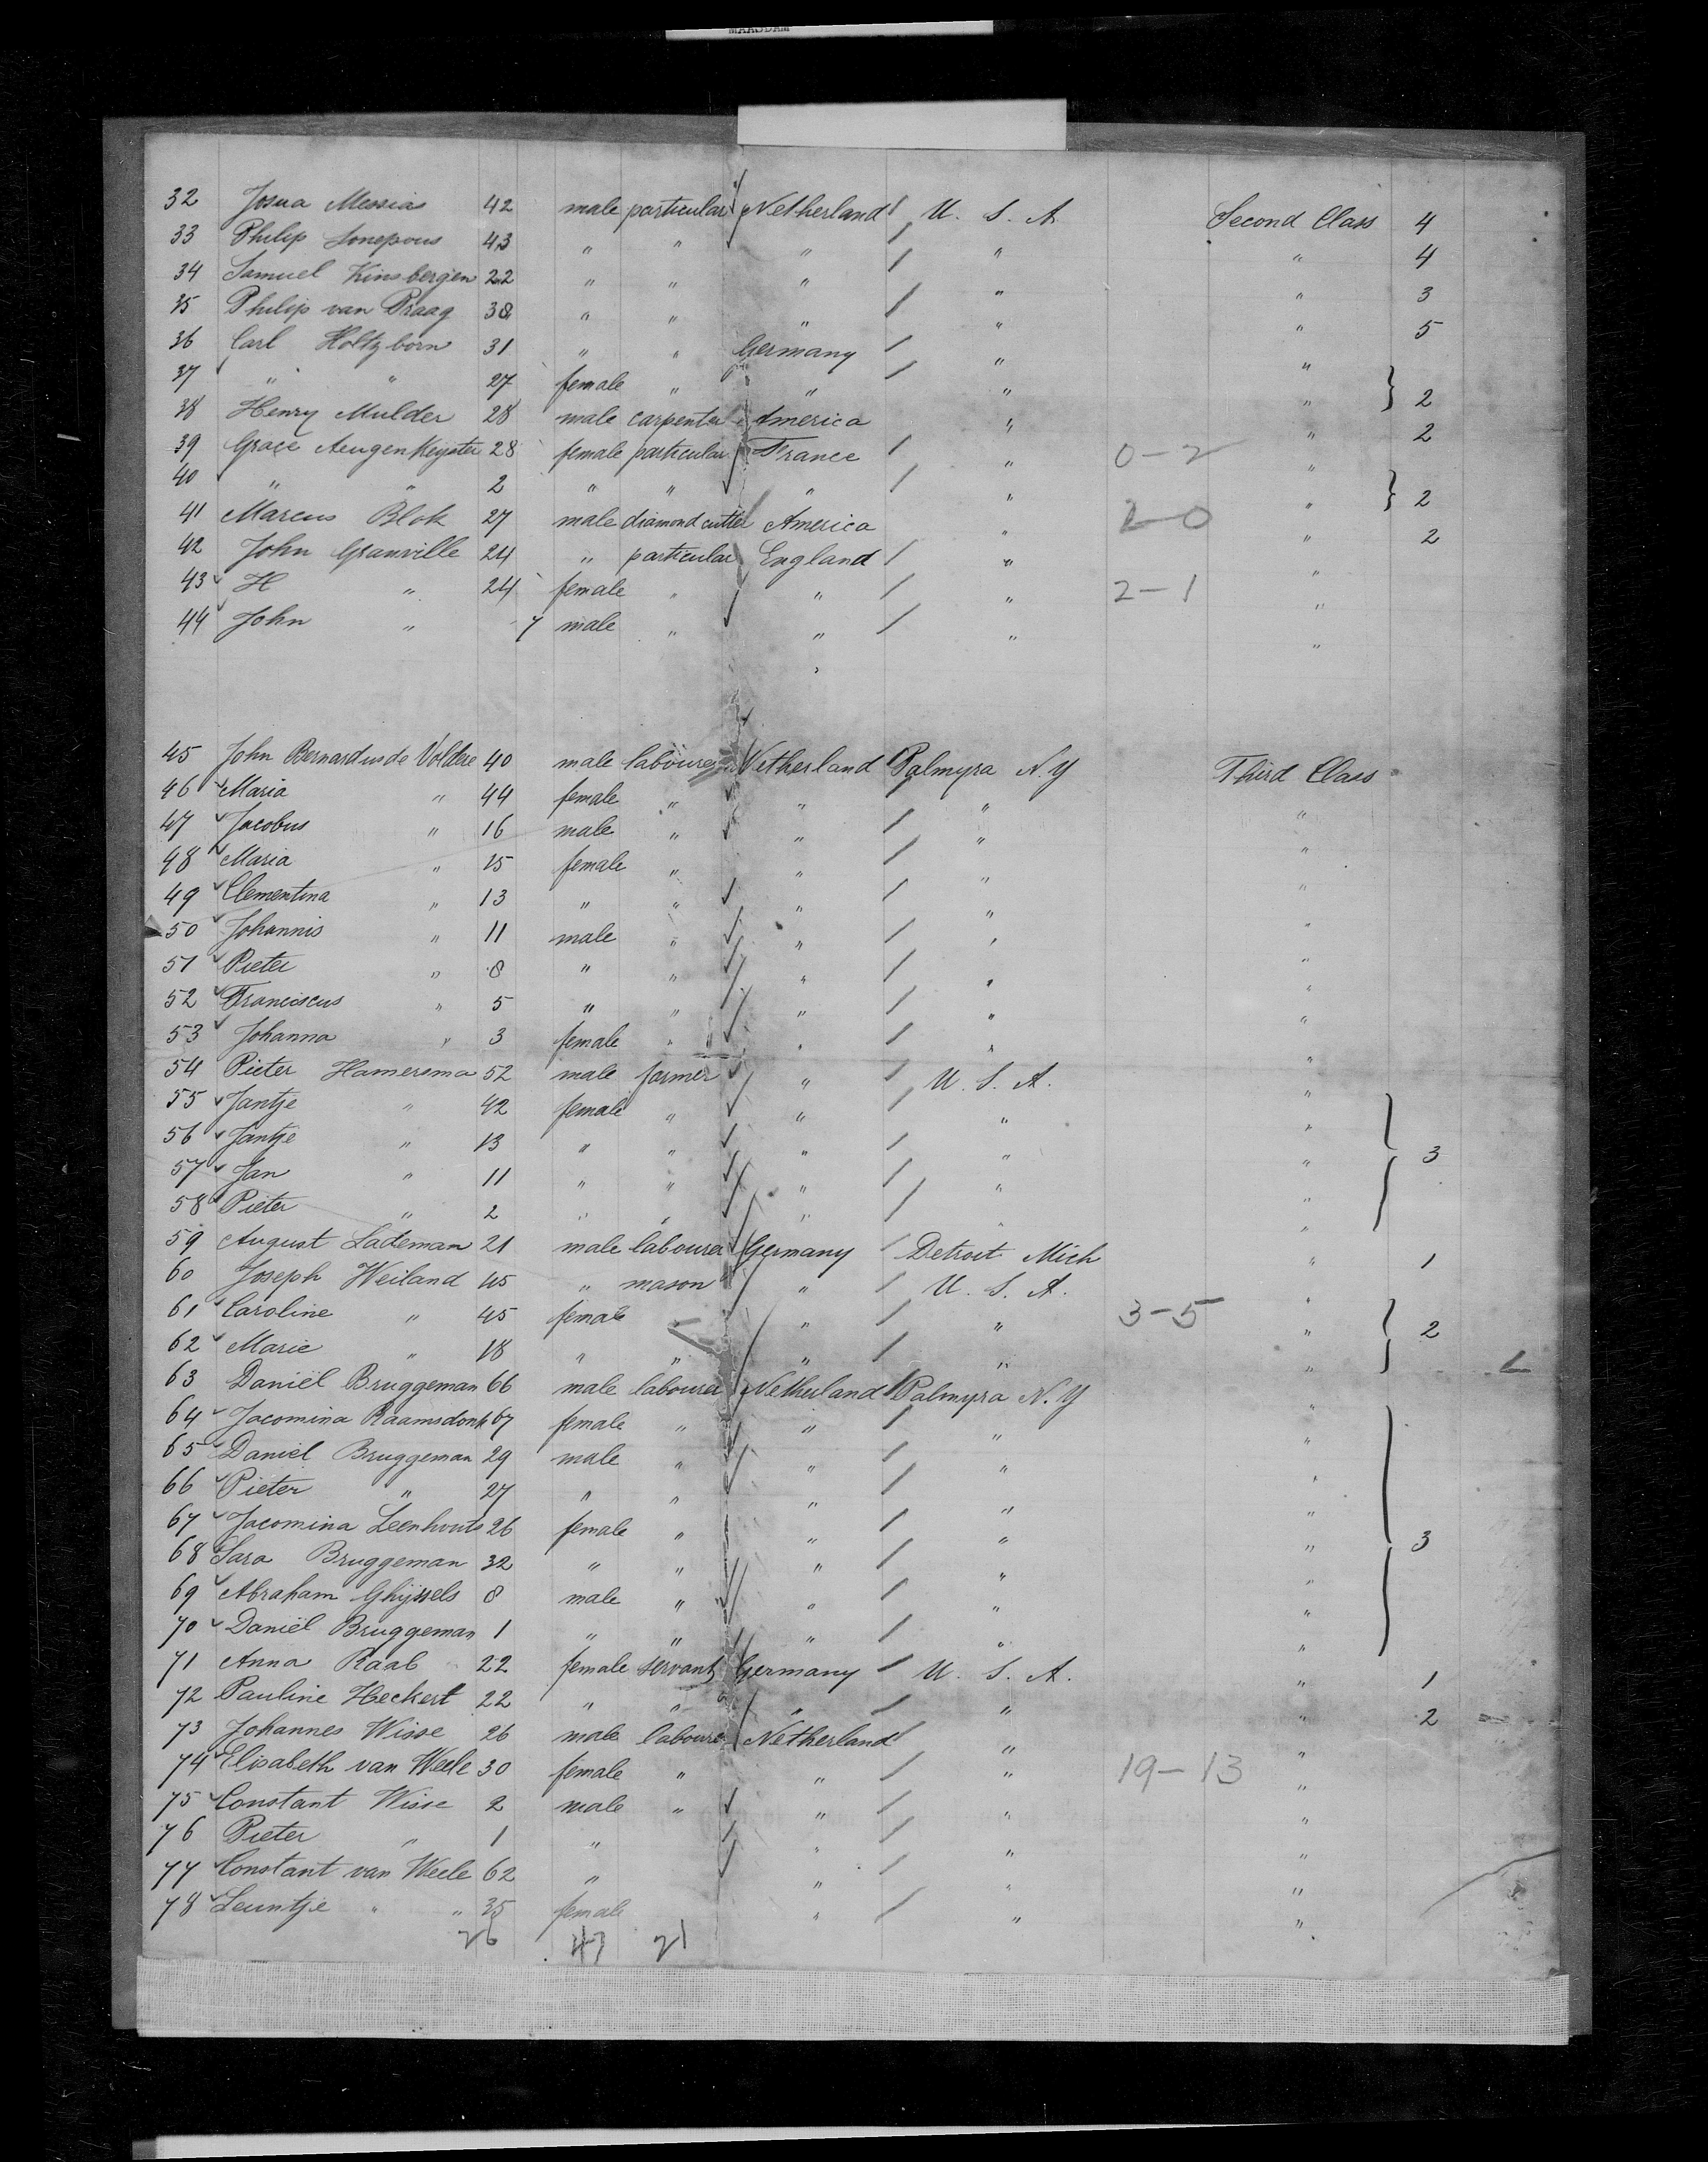 MAASDAM
32 Josua Messias 42 male particular Netherland U. S. A. Second Class 4
33 Philip Sonepous 43 " " " " " 4
34 Samuel Kinsbergen 22 " " " " " 3
35 Philip van Praag 38 " " " " " 5
36 Carl Holtzborn 31 " " Germany " "
37 " " 27 female " " " " } 2
38 Henry Mulder 28 male carpenter America " " 2
39 Grace Aeugenheyster 28 female particular France " 0-2 "
40 " " 2 " " " " " } 2
41 Marcus Blok 27 male diamond cutter America " 2-0 " 2
42 John Granville 24 " particular England " "
43 H " 24 female " " " 2-1 "
44 John " 7 male " " " "
45 John Bernardus de Voldere 40 male labourer Netherland Palmyra N.Y Third Class
46 Maria " 44 female " " " "
47 Jacobus " 16 male " " " "
48 Maria " 15 female " " " "
49 Clementina " 13 " " " " "
50 Johannis " 11 male " " " "
51 Pieter " 8 " " " " "
52 Franciscus " 5 " " " " "
53 Johanna " 3 female " " " "
54 Pieter Hamersma 52 male farmer " U. S. A. "
55 Jantje " 42 female " " " "
56 Jantje " 13 " " " " " } 3
57 Jan " 11 " " " " "
58 Pieter " 2 " " " " "
59 August Lademan 21 male labourer Germany Detroit Mich " 1
60 Joseph Weiland 45 " mason " U. S. A. "
61 Caroline " 45 female " " 3-5 " } 2
62 Marie " 18 " " " " "
63 Daniël Bruggeman 66 male labourer Netherland Palmyra N.Y "
64 Jacomina Raamsdonk 67 female " " " "
65 Daniël Bruggeman 29 male " " " "
66 Pieter " 27 " " " " "
67 Jacomina Leenhouts 26 female " " " " } 3
68 Sara Bruggeman 32 " " " " "
69 Abraham Ghijssels 8 male " " " "
70 Daniël Bruggeman 1 " " " " "
71 Anna Raab 22 female servant Germany U. S. A. " 1
72 Pauline Heckert 22 " " " " " 2
73 Johannes Wisse 26 male labourer Netherland " "
74 Elisabeth van Weele 30 female " " " 19-13 "
75 Constant Wisse 2 male " " " "
76 Pieter " 1 " " " "
77 Constant van Weele 62 " " " "
78 Leuntje " " 35 female " " "
26 47 21